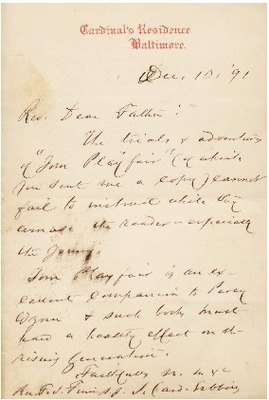 Cardinal's Residence
Baltimore.
Dec. 10, '91
Rev. Dear Father:
The trials & adventures
of "Tom Playfair" (of which
you sent me a copy) cannot
fail to instruct while they
amuse the reader - especially
the young.
Tom Playfair is an ex-
cellent companion to Percy
Wynn & such books must
have a healthy effect on the
rising generation.
Faithfully yrs. in Xt
Rev. F. J. Finn S.J. J. Card. Gibbons